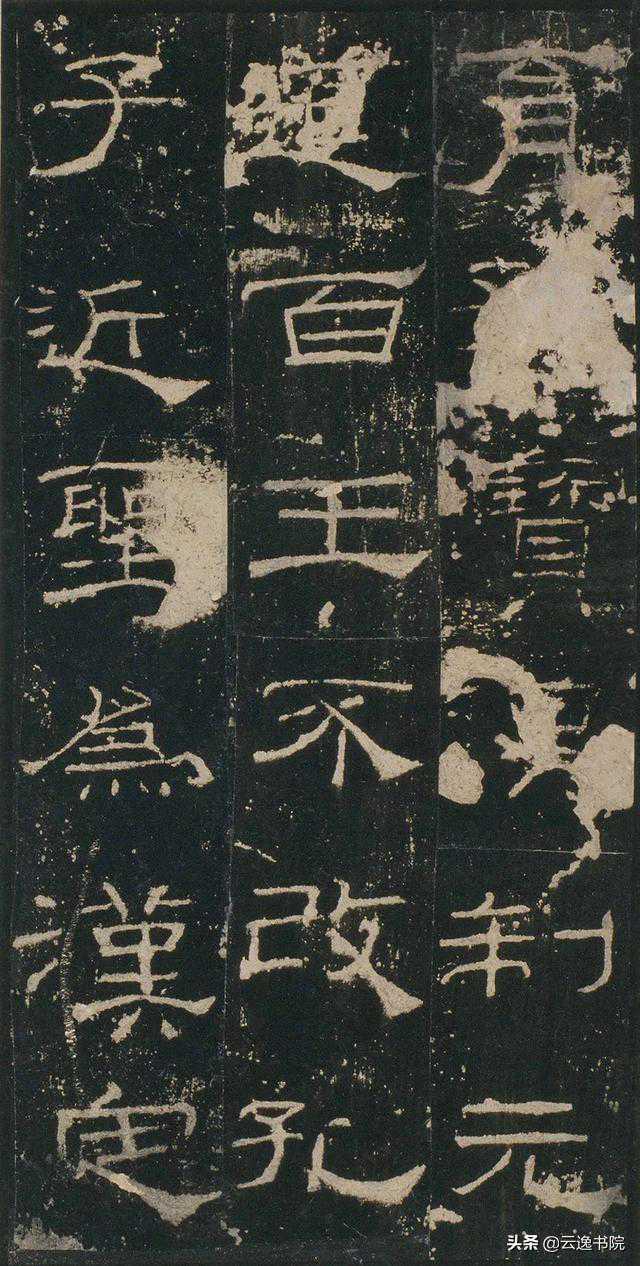 育寶制元
道百王不改孔
子近聖為漢定
头条 @云逸书院